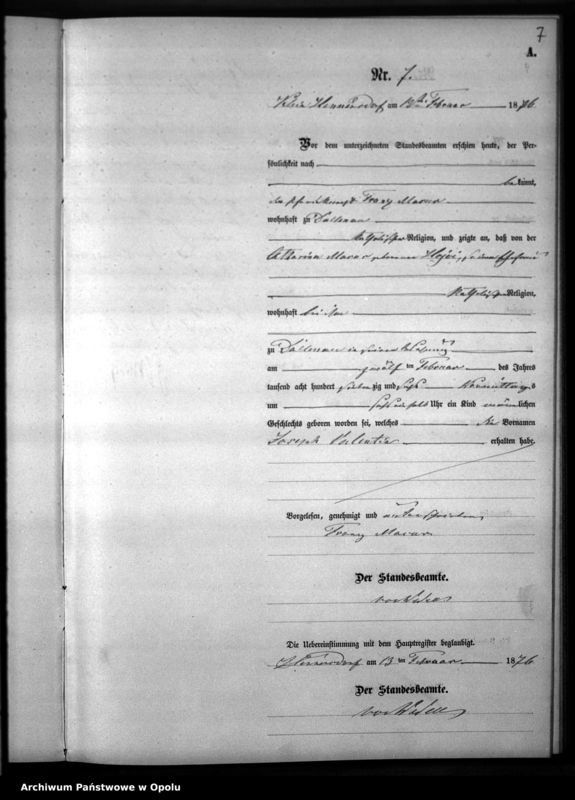 7
A.
Nr. 7.
Hennersdorf am 13ten Februar 1876
Vor dem unterzeichneten Standesbeamten erschien heute, der Per-
sönlichkeit nach
bekannt,
Franz Macur
wohnhaft zu
katholischer Religion, und zeigte an, daß von der
Catharina Macur geborenen
katholischer Religion,
wohnhaft bei ihm
zu in seiner Wohnung
am zwölf ten Februar des Jahres
tausend acht hundert siebenzig und sechs Vormittags
um Uhr ein Kind männlichen
Geschlechts geboren worden sei, welches die Vornamen
Joseph Valentin erhalten habe.
Vorgelesen, genehmigt und unterschrieben
Franz Macur
Der Standesbeamte.
Die Uebereinstimmung mit dem Hauptregister beglaubigt.
Hennersdorf am 13 ten Februar 1876
Der Standesbeamte.
Archiwum Państwowe w Opolu